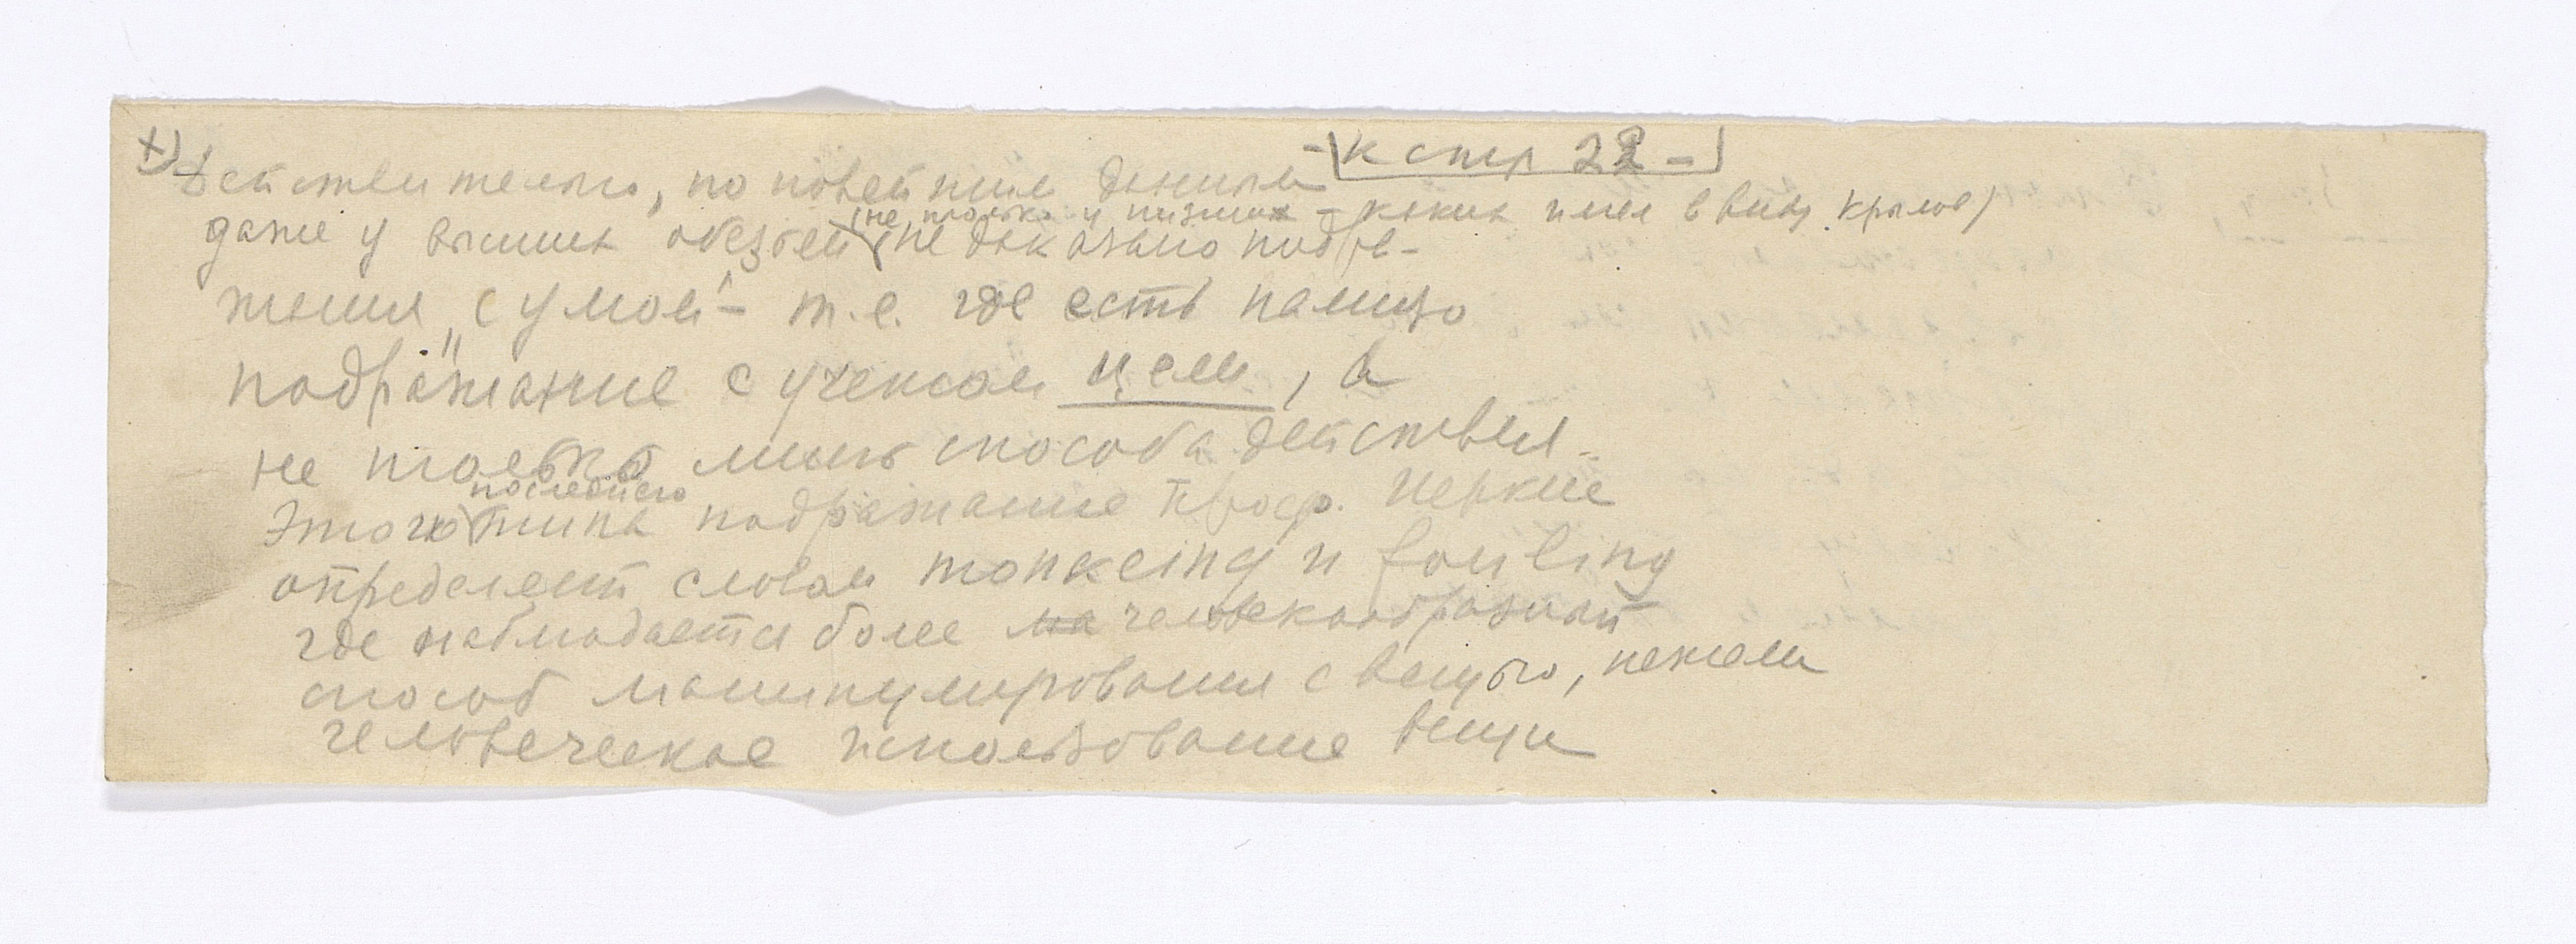 к стр 22 –
+) Действительно, по новейшим данным –
(не только у низших – каких имел в виду Крылов)
даже у высших обезьян не доказано подра-
жания „с умом“ – т.е. где есть налицо
подражание с учетом цели, а
не только лишь способа действия –
последнего
Этого типа подражание проф. Иеркис
определяет словом monkeing и fouling
где наблюдается более на человекообразный
способ манипулирования с вещью, нежели
человеческое использование вещи